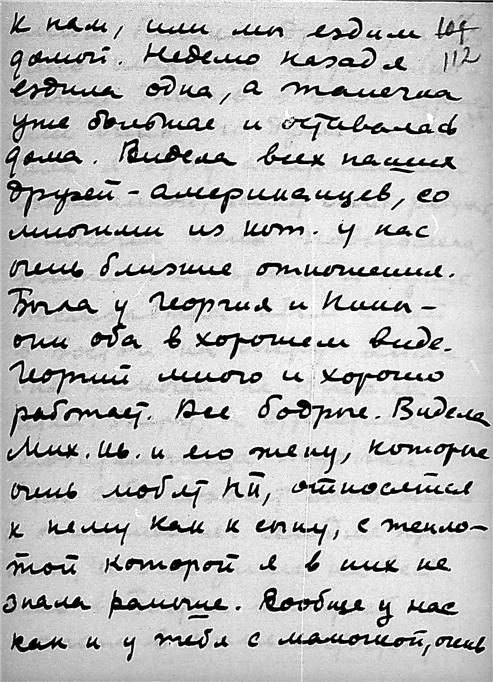 к нам, или мы ездим 104
домой. Неделю назад я 112
ездила одна, а
уже большая и оставалась
дома. Видела всех наших
друзей - американцев, со
многими из кот. у нас
очень близкие отношения.
Была у Георгия и Нины -
они оба в хорошем виде.
Георгий много и хорошо
работает. Все бодрые. Видела
Мих. Ив. и его жену, которые
очень любят НП, относятся
к нему как к сыну, с тепло-
той которой я в них не
знала раньше. Вообще у нас
как и у тебя с мамочкой, очень